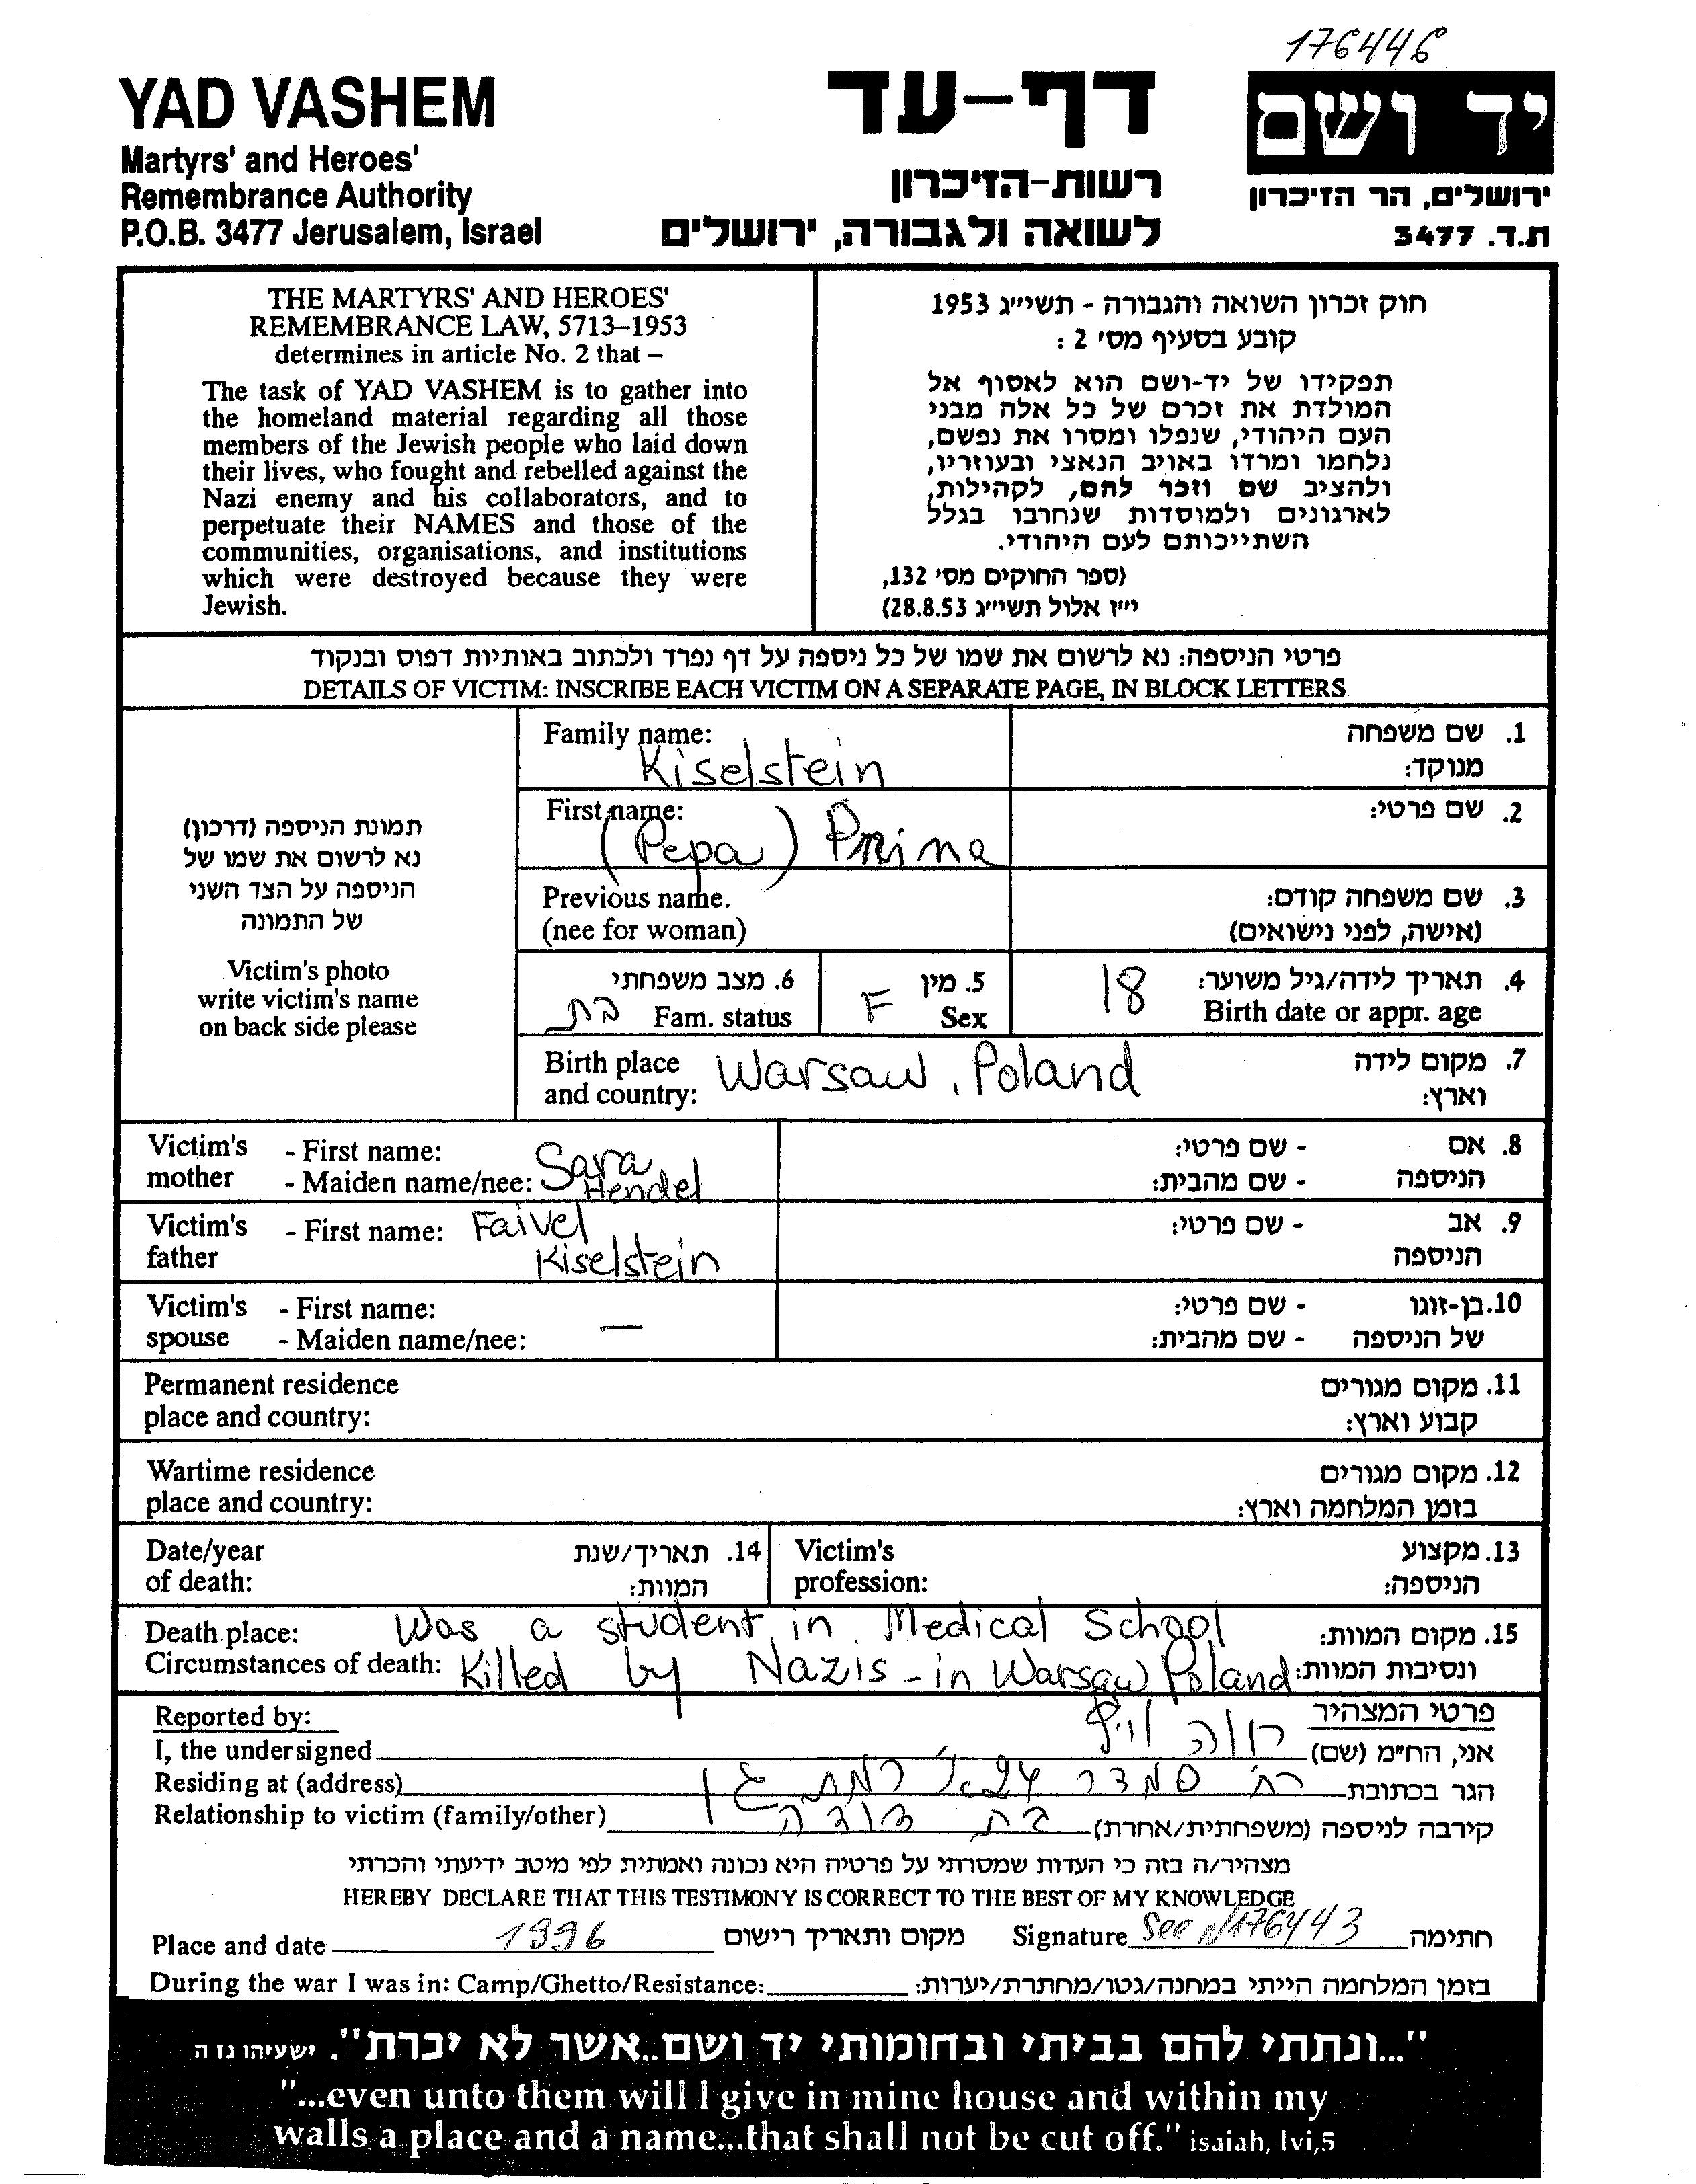 176446
YAD VASHEM
Martyrs' and Heroes'
Remembrance Authority
P.O.B. 3477 Jerusalem, Israel
דף-עד
רשות-הזיכרון
לשואה ולגבורה, ירושלים
יד ושם
ירושלים, הר הזיכרון
ת.ד. 3477
THE MARTYRS' AND HEROES'
REMEMBRANCE LAW, 5713–1953
determines in article No. 2 that –
The task of YAD VASHEM is to gather into
the homeland material regarding all those
members of the Jewish people who laid down
their lives, who fought and rebelled against the
Nazi enemy and his collaborators, and to
perpetuate their NAMES and those of the
communities, organisations, and institutions
which were destroyed because they were
Jewish.
חוק זכרון השואה והגבורה - תשי״ג 1953
קובע בסעיף מס׳ 2 :
תפקידו של יד-ושם הוא לאסוף אל
המולדת את זכרם של כל אלה מבני
העם היהודי, שנפלו ומסרו את נפשם,
נלחמו ומרדו באויב הנאצי ובעוזריו,
ולהציב שם וזכר להם, לקהילות,
לארגונים ולמוסדות שנחרבו בגלל
השתייכותם לעם היהודי.
(ספר החוקים מס׳ 132,
י״ז אלול תשי״ג 28.8.53)
פרטי הניספה: נא לרשום את שמו של כל ניספה על דף נפרד ולכתוב באותיות דפוס ובנקוד
DETAILS OF VICTIM: INSCRIBE EACH VICTIM ON A SEPARATE PAGE, IN BLOCK LETTERS
תמונת הניספה (דרכון)
נא לרשום את שמו של
הניספה על הצד השני
של התמונה
Victim's photo
write victim's name
on back side please
Family name: 1. שם משפחה
Kiselstein מנוקד:
First name: 2. שם פרטי:
(Pepa) Pnina
Previous name. 3. שם משפחה קודם:
(nee for woman) (אישה, לפני נישואים)
6. מצב משפחתי 5. מין 18 4. תאריך לידה/גיל משוער:
בת Fam. status F Sex Birth date or appr. age
Birth place Warsaw, Poland 7. מקום לידה
and country: וארץ:
Victim's - First name: Sara 8. אם - שם פרטי:
mother - Maiden name/nee: Hendel הניספה - שם מהבית:
Victim's - First name: Faivel 9. אב - שם פרטי:
father Kiselstein הניספה
Victim's - First name: 10. בן-זוגו - שם פרטי:
spouse - Maiden name/nee: — של הניספה - שם מהבית:
Permanent residence 11. מקום מגורים
place and country: קבוע וארץ:
Wartime residence 12. מקום מגורים
place and country: בזמן המלחמה וארץ:
Date/year 14. תאריך/שנת Victim's 13. מקצוע
of death: המוות: profession: הניספה:
Death place: Was a student in Medical School 15. מקום המוות:
Circumstances of death: Killed by Nazis - in Warsaw Poland ונסיבות המוות:
Reported by: פרטי המצהיר
I, the undersigned אני, החי״מ (שם)
Residing at (address) הגר בכתובת רח׳ סמדר רמת גן
Relationship to victim (family/other) קירבה לניספה (משפחתית/אחרת) בת דודה
מצהיר/ה בזה כי העדות שמסרתי על פרטיה היא נכונה ואמתית לפי מיטב ידיעתי והכרתי
HEREBY DECLARE THAT THIS TESTIMONY IS CORRECT TO THE BEST OF MY KNOWLEDGE
Place and date 1996 מקום ותאריך רישום Signature See N176443 חתימה
During the war I was in: Camp/Ghetto/Resistance: בזמן המלחמה הייתי במחנה/גטו/מחתרת/יערות:
"...ונתתי להם בביתי ובחומותי יד ושם..אשר לא יכרת". ישעיהו נו ה
"...even unto them will I give in mine house and within my
walls a place and a name...that shall not be cut off." isaiah, lvi,5